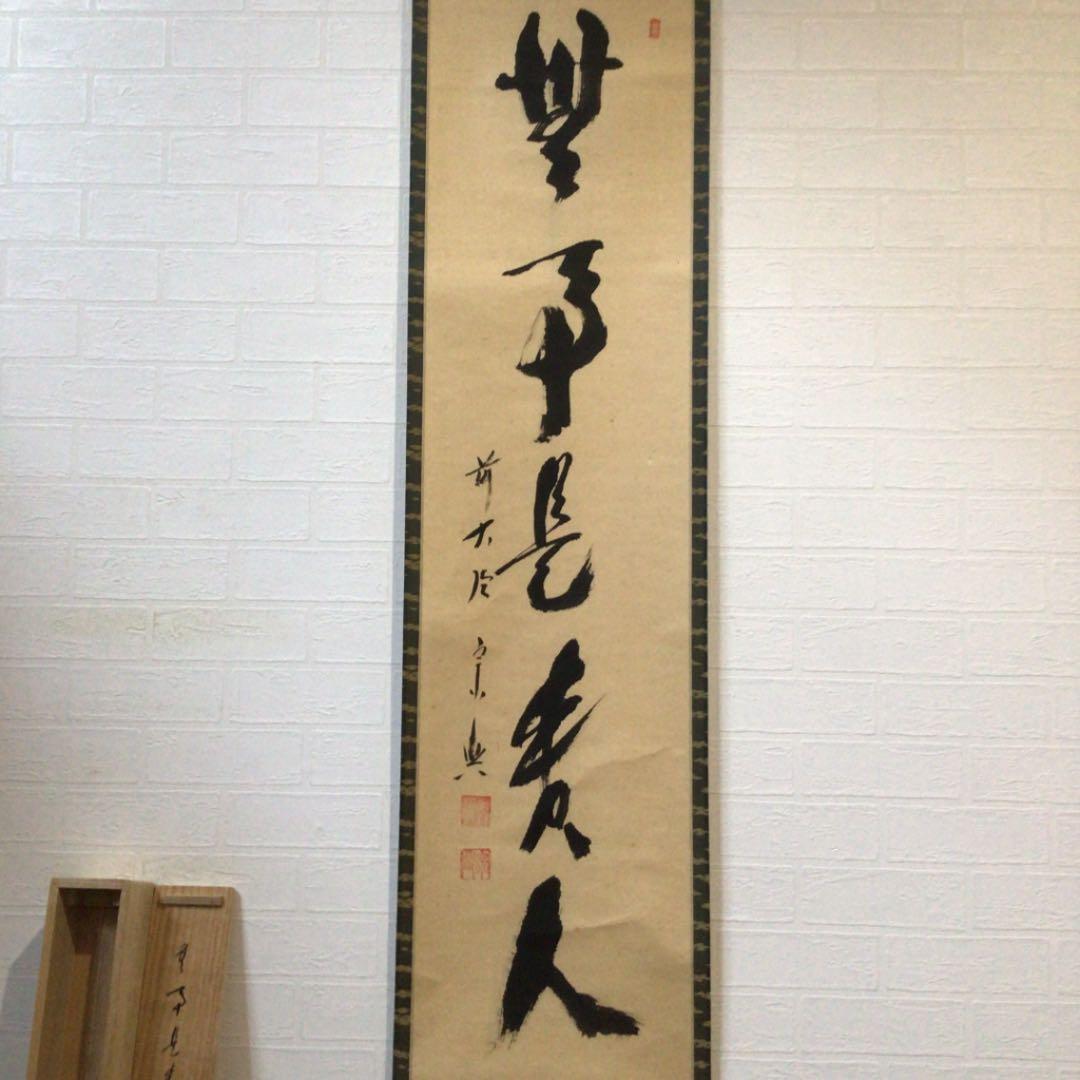 無事是貴人
前大徳 宗興
無事是貴